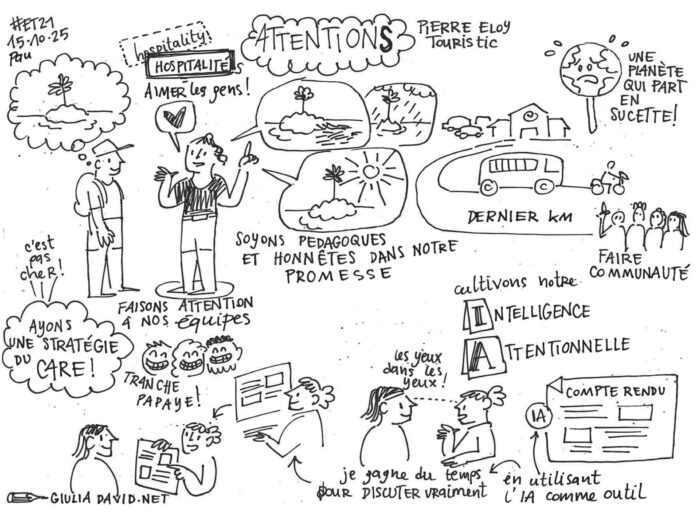 #ET21
15-10-25
Pau
hospitality
HOSPITALITÉS
AIMER les gens !
ATTENTIONS
PIERRE ELOY
TOURISTIC
UNE
PLANÈTE
QUI PART
EN
SUCETTE!
SOYONS PEDAGOQUES
ET HONNÊTES DANS NOTRE
PROMESSE
DERNIER KM
FAIRE
COMMUNAUTÉ
c'est
pas
cheR!
AYONS
UNE STRATÉGIE
DU CARE !
FAISONS ATTENTION
À NOS équipes
TRANCHE
PAPAYE!
cultivons notre
INTELLIGENCE
ATTENTIONNELLE
les yeux
dans les
yeux!
COMPTE RENDU
IA
je gagne du temps
pour DISCUTER VRAIMENT
en utilisant
l'IA comme outil
GIULIA DAVID.NET